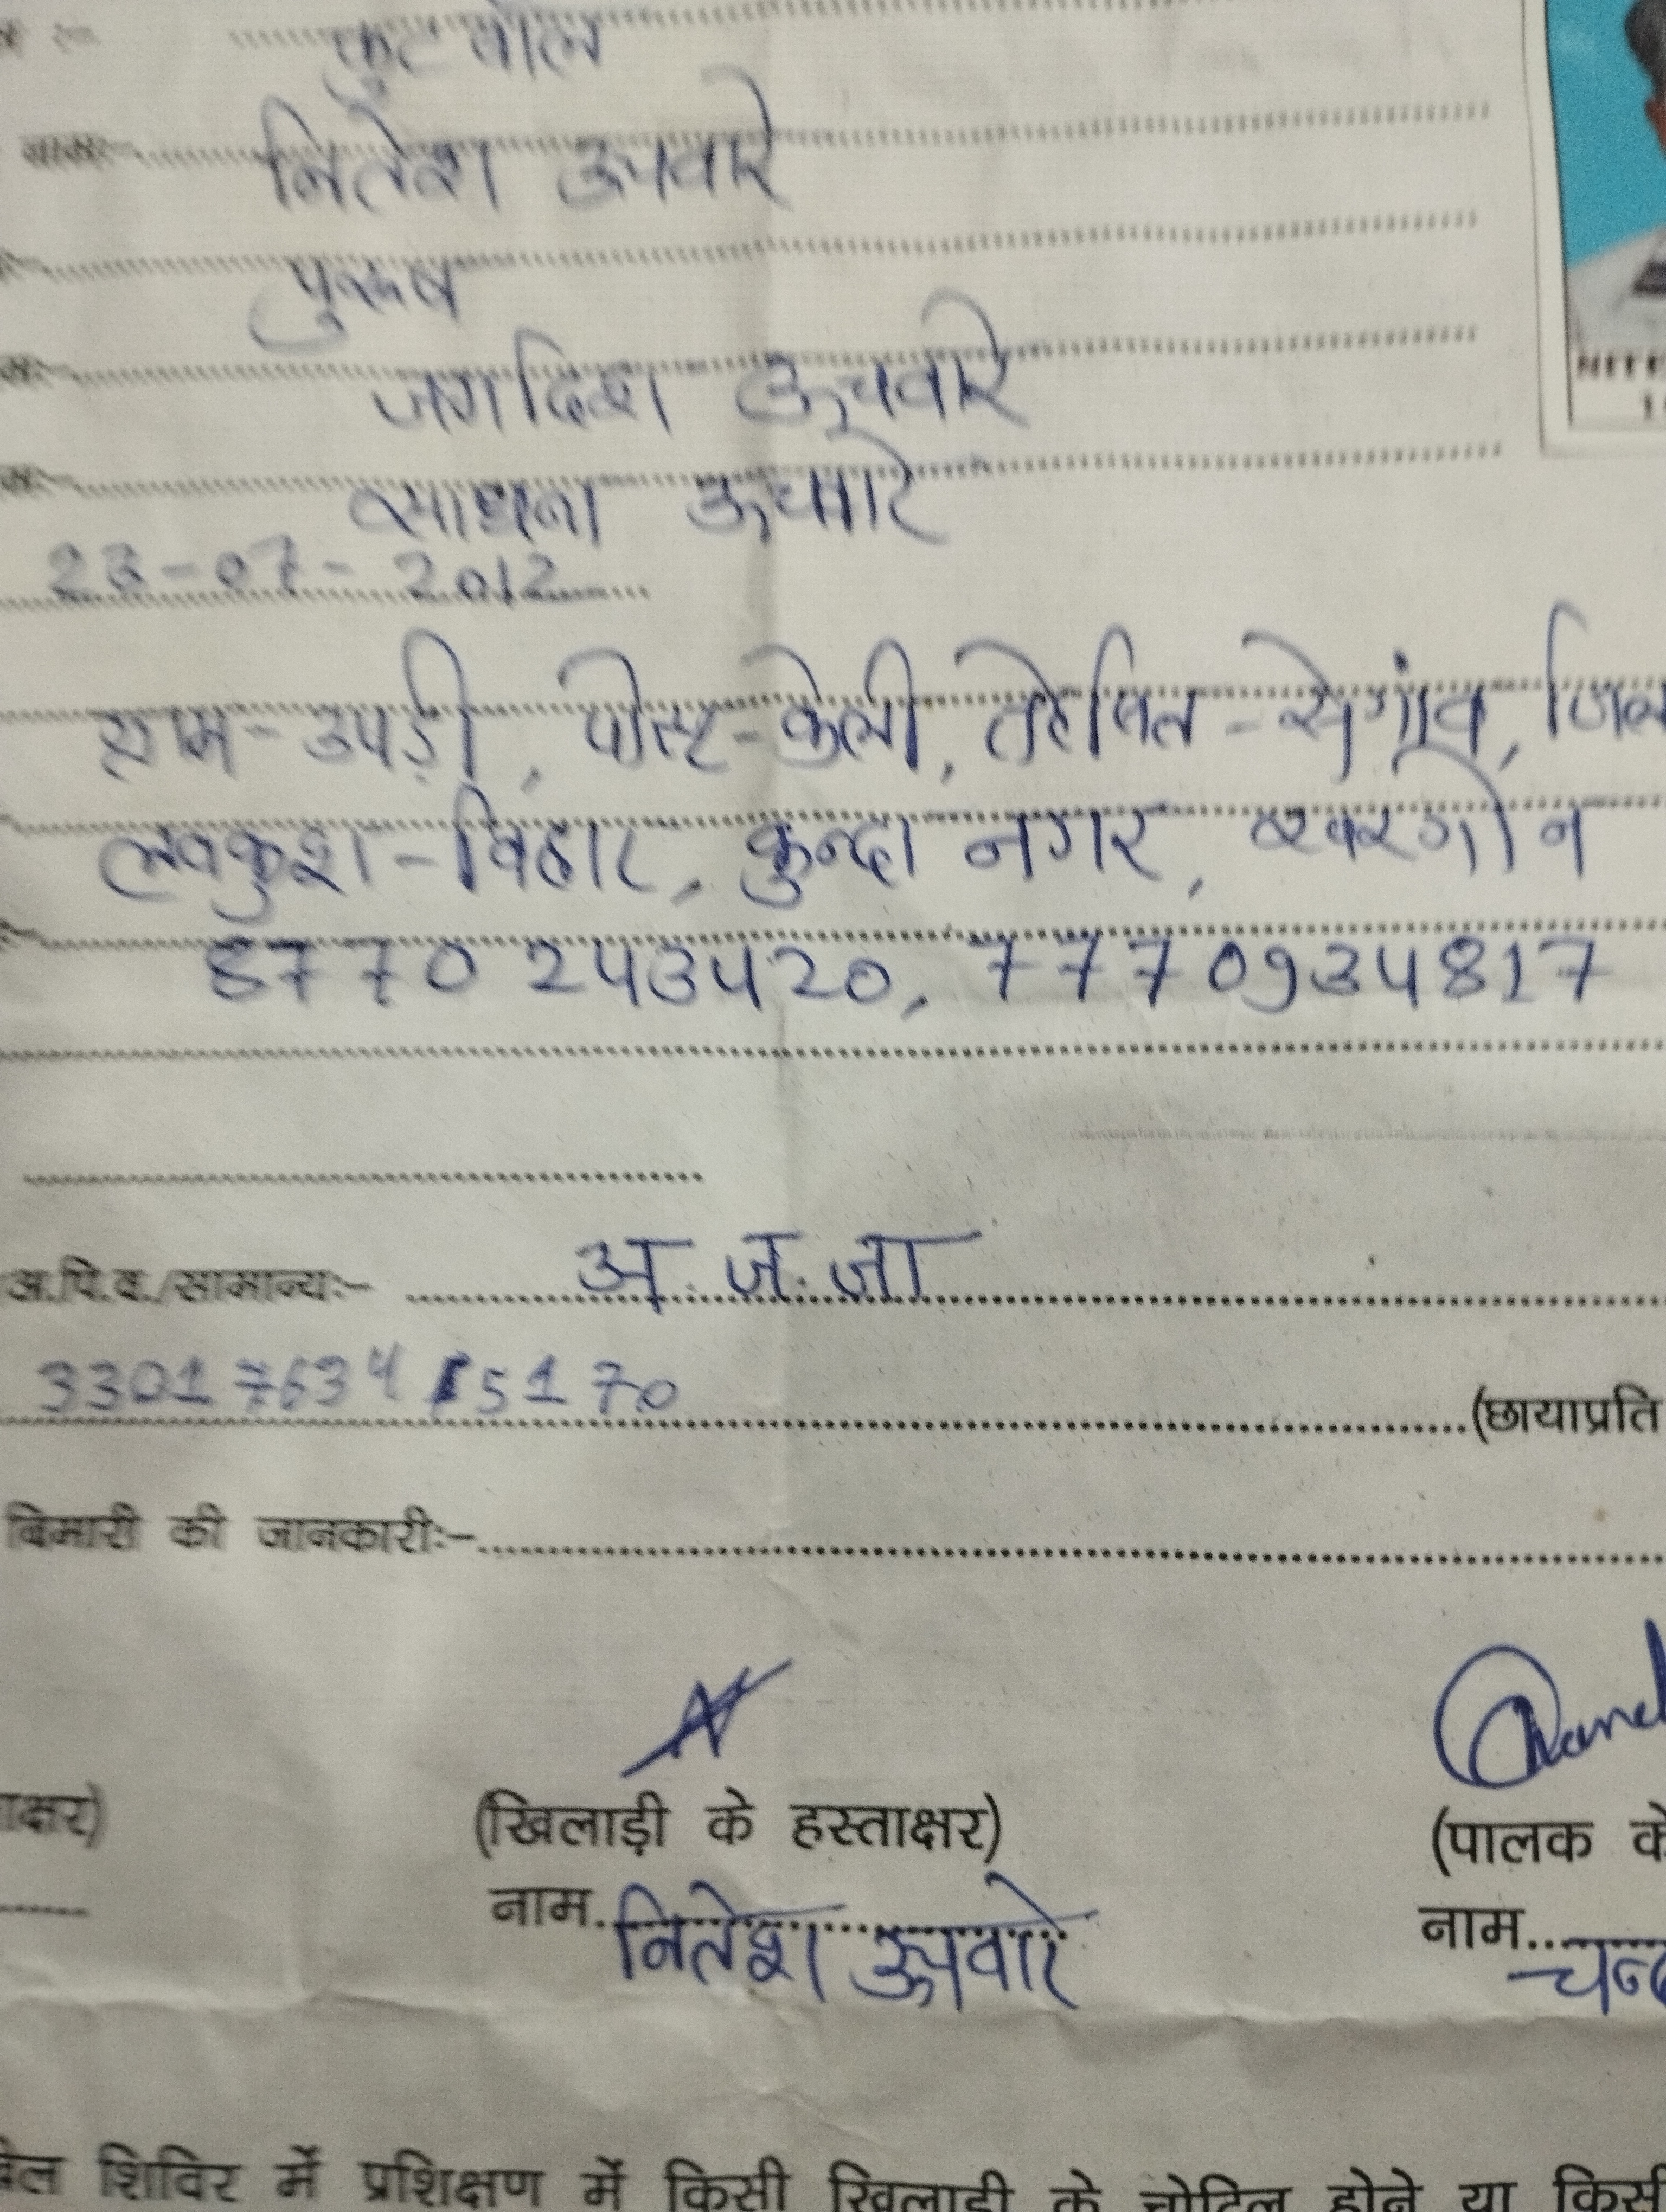 फुटबॉल
नामः- नितेश ऊचवारे
पुरूष
जगदिश ऊचवारे
साधना ऊचवारे
23-07-2012
ग्राम-उपड़ी, पोस्ट-केली, तहसित-सेगांव, जिल
लवकुश-विहार, कुन्दा नगर, खरगोन
8770243420, 7770934817
अ.पि.व./सामान्यः- अ.ज.जा
3301763415170
(छायाप्रति
बिमारी की जानकारीः-
ाक्षर)
(खिलाड़ी के हस्ताक्षर)
(पालक के
नाम नितेश ऊचवारे
नाम चन्द
शिविर में प्रशिक्षण में किसी खिलाड़ी के चोटिल होने या किसी